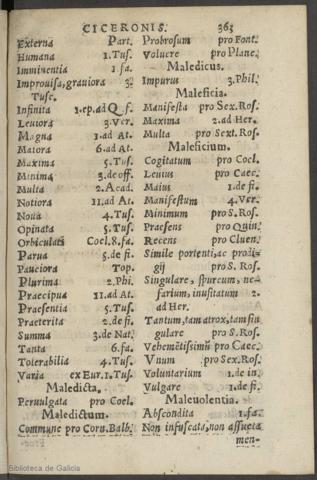 CICERONIS. 363
Externa Part.
Humana 1.Tus.
Imminentia 1.fa.
Improuisa, grauiora 3.
Tusc.
Infinita 1.ep.ad Q.f.
Leuiora 3.Ver.
Magna 1.ad At.
Maiora 6.ad At.
Maxima 5.Tus.
Minima 3.de off.
Multa 2.Acad.
Notiora 11.ad At.
Noua 4.Tus.
Opinata 5.Tus.
Orbiculati Coel.8.fa.
Parua 5.de fi.
Pauciora Top.
Plurima 2.Phi.
Praecipua 11.ad At.
Praesentia 5.Tus.
Praeterita 2.de fi.
Summa 3.de Nat.
Tanta 6.fa.
Tolerabilia 4.Tus.
Varia ex Eur.1.Tus.
Maledicta.
Peruulgata pro Coel.
Maledictum.
Commune pro Corn.Balb.
Probrosum pro Font.
Volucre pro Planc.
Maledicus.
Impurus 3.Phil.
Maleficia.
Manifesta pro Sex.Ros.
Maxima 2.ad Her.
Multa pro Sext.Ros.
Maleficium.
Cogitatum pro Coel.
Leuius pro Caec.
Maius 1.de fi.
Manifestum 4.Ver.
Minimum pro S.Ros.
Praesens pro Quin.
Recens pro Cluen.
Simile portenti, ac prodi-
gij pro S.Ros.
Singulare, spurcum, ne-
farium, inusitatum 2.
ad Her.
Tantum, tam atrox, tam sin
gulare pro S.Ros.
Vehemẽtissimũ pro Caec.
Vnum pro Sex.Ros.
Voluntarium 1.de in.
Vulgare 1.de fi.
Maleuolentia.
Abscondita 1.fa.
Non infuscata, non assueta
men-
Biblioteca de Galicia